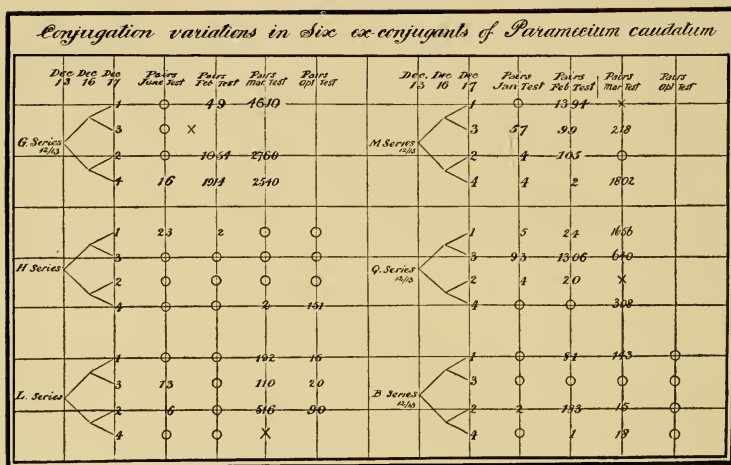 Conjugation variations in Six ex-conjugants of Paramecium caudatum
Dec 13 Dec 16 Dec 17 Pairs June Test Pairs Feb Test Pairs Mar. Test Pairs Apl Test
G. Series 12/13
1 O 49 4610
3 O X
2 O 1054 2760
4 16 1914 2540
H Series
1 23 2 O O
3 O O O O
2 O O O O
4 O O 2 151
L. Series
1 O O 192 15
3 73 O 110 20
2 6 O 516 90
4 O O X
Dec. 13 Dec 16 Dec 17 Pairs Jan Test Pairs Feb Test Pairs Mar Test Pairs Apl Test
M Series 12/13
1 O 1394 X
3 57 99 218
2 4 105 O
4 4 2 1802
Q. Series 12/13
1 5 24 1656
3 93 1306 640
2 4 20 X
4 O O 308
B Series 12/13
1 O 81 143 O
3 O O O O
2 2 133 15 O
4 O 1 18 O